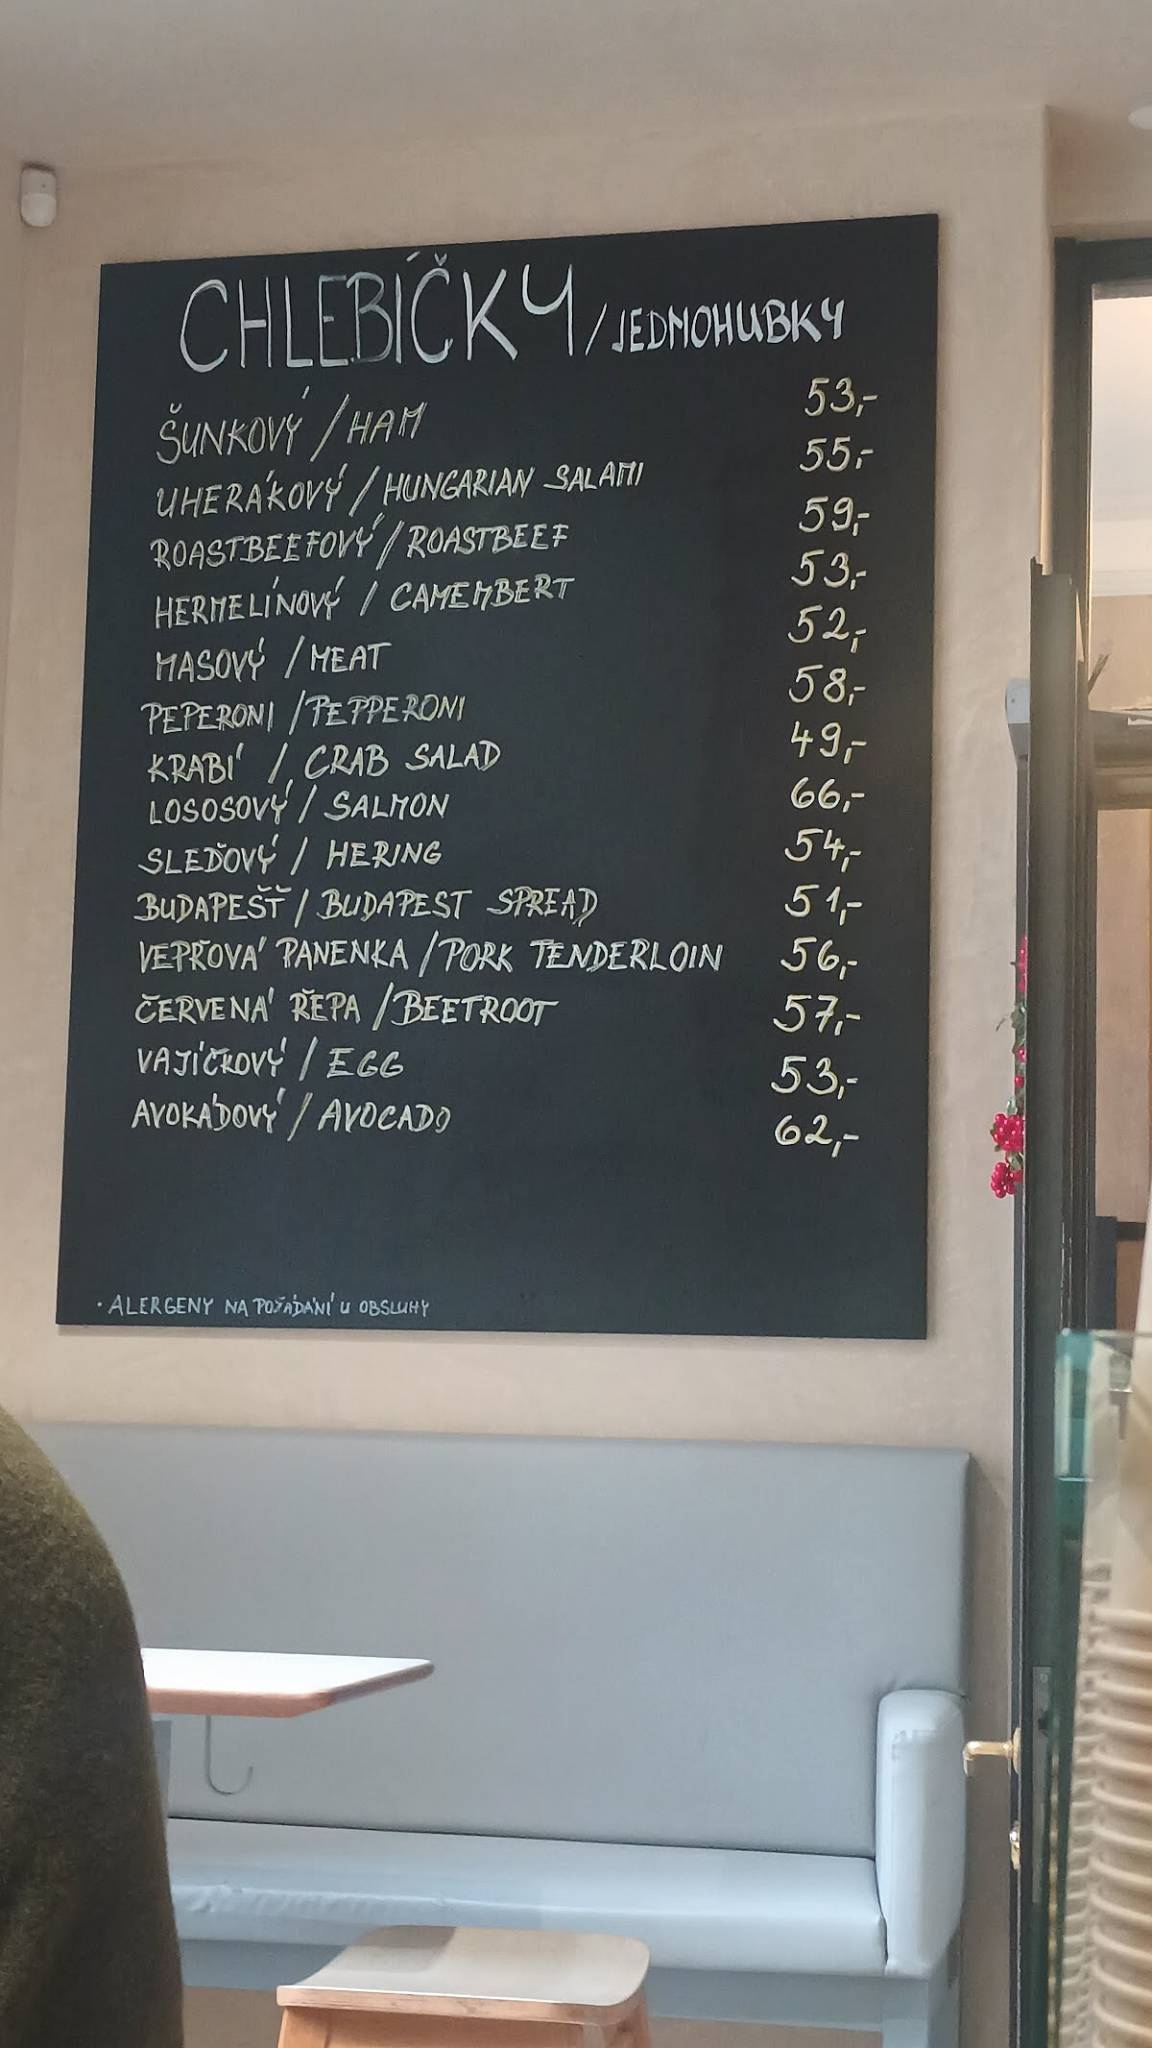 CHLEBÍČKY / JEDNOHUBKY
ŠUNKOVÝ / HAM 53,-
UHERÁKOVÝ / HUNGARIAN SALAMI 55,-
ROASTBEEFOVÝ / ROASTBEEF 59,-
HERMELÍNOVÝ / CAMEMBERT 53,-
MASOVÝ / MEAT 52,-
PEPERONI / PEPPERONI 58,-
KRABÍ / CRAB SALAD 49,-
LOSOSOVÝ / SALMON 66,-
SLEĎOVÝ / HERING 54,-
BUDAPEŠŤ / BUDAPEST SPREAD 51,-
VEPŘOVÁ PANENKA / PORK TENDERLOIN 56,-
ČERVENÁ ŘEPA / BEETROOT 57,-
VAJÍČKOVÝ / EGG 53,-
AVOKÁDOVÝ / AVOCADO 62,-
• ALERGENY NA POŽÁDÁNÍ U OBSLUHY